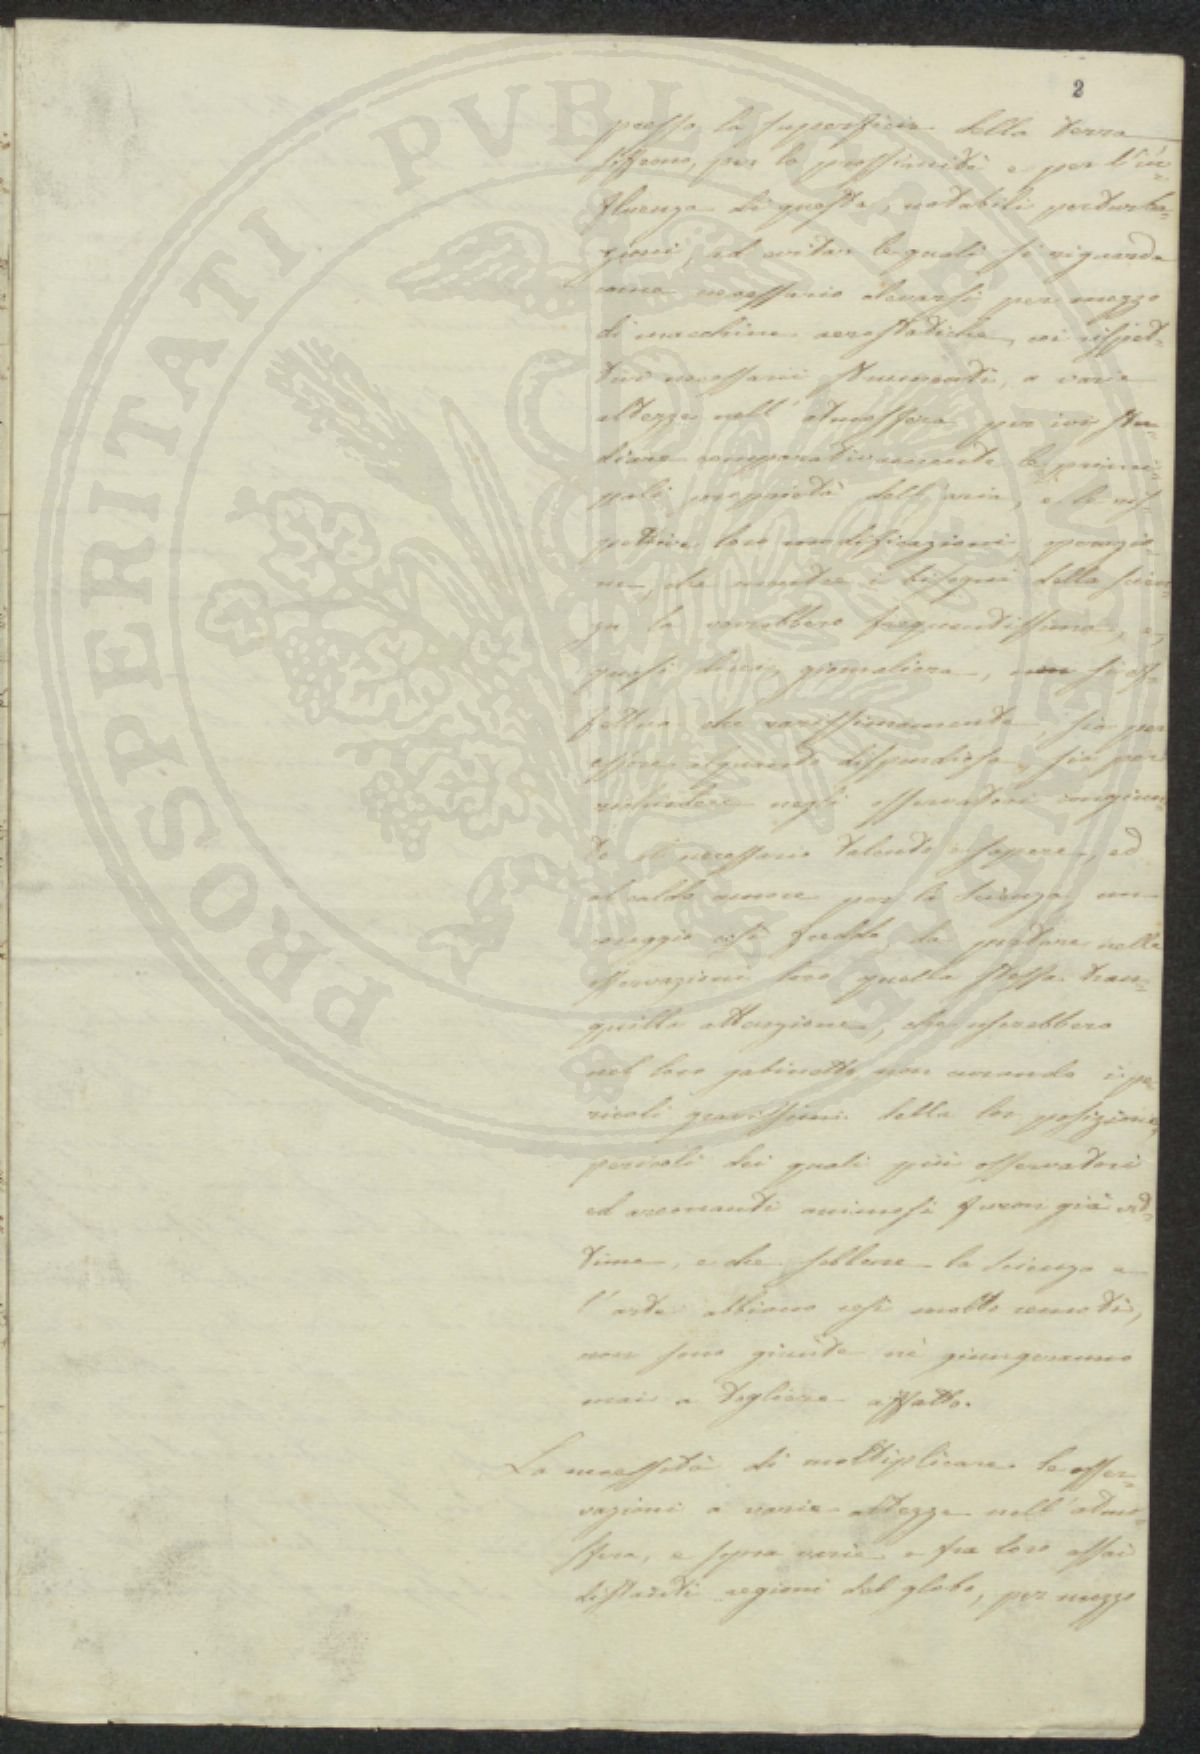 2
presso la superficie della terra
soffrono, per la prossimità e per l'in=
fluenza di questa, notabili perturba=
zioni, ad evitar le quali si riguarda
come necessario elevarsi per mezzo
di macchine aerostatiche, coi rispet=
tivi necessarii strumenti, a varie
altezze nell'atmosfera per ivi stu=
diare comparativamente le princi=
pali proprietà dell'aria, e le ris=
pettive loro modificazioni, operazio
ne, che mentre i bisogni della scien=
za la vorrebbero frequentissima, e,
quasi direi, giornaliera, non si ef=
fettua che rarissimamente, sia per
essere alquanto dispendiosa, sia per
richiedere negli osservatori congiun
to al necessario talento e sapere, ed
al caldo amore per la scienza, un
coraggio così freddo da portare nelle
osservazioni loro quella stessa tran=
quilla attenzione, che userebbero
nel loro gabinetto, non curando i pe=
ricoli gravissimi della lor posizione,
pericoli dei quali più osservatori
ed areonauti animosi furon già vit=
time, e che sebbene la scienza e
l'arte abbiano resi molto remoti,
non sono giunte nè giungeranno
mai a togliere affatto.
La necessità di moltiplicare le osser=
vazioni a varie altezze nell'atmo=
sfera, e sopra varie e fra loro assai
distanti regioni del globo, per mezzo
PROSPERITATI PVBLICAE AVGENDAE